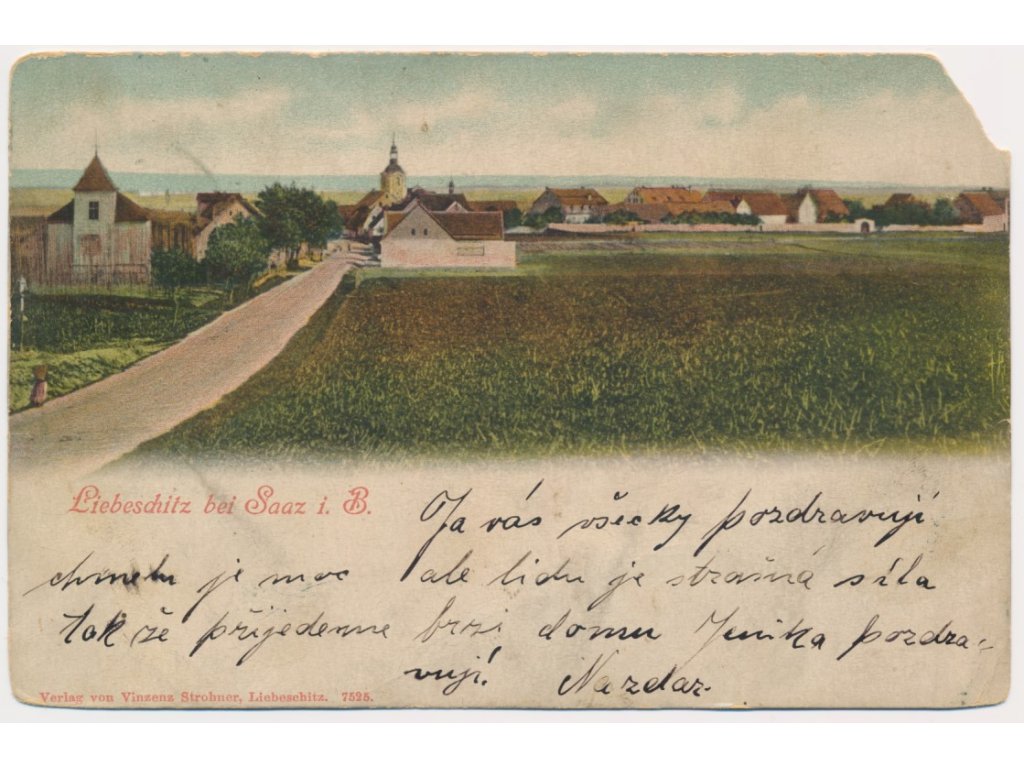 Liebeschitz bei Saaz i. B.
Ja vás všecky pozdravuji
chmelu je moc ale lidu je strašná síla
tak že přijedeme brzi domu Jenika pozdra-
vuji! Nazdar.
Verlag von Vinzenz Strohner, Liebeschitz. 7525.